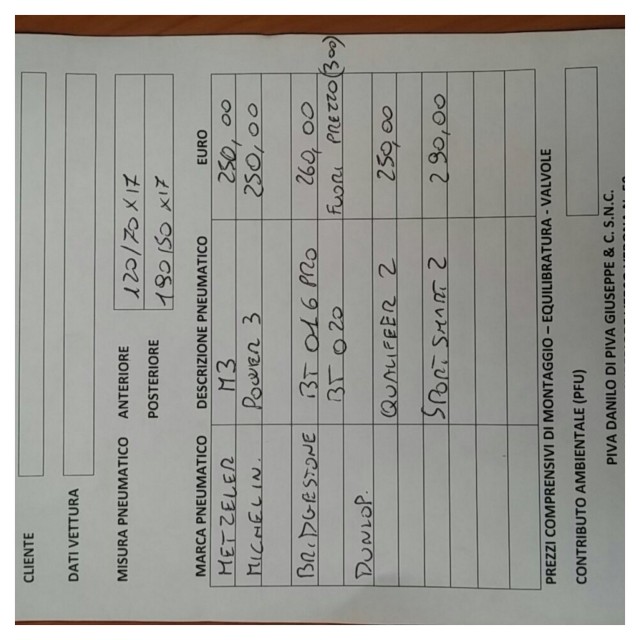 CLIENTE
DATI VETTURA
MISURA PNEUMATICO ANTERIORE 120/70 X 17
POSTERIORE 190/50 X 17
MARCA PNEUMATICO DESCRIZIONE PNEUMATICO EURO
METZELER M3 250,00
MICHELIN. POWER 3 250,00
BRIDGESTONE BT 016 PRO 260,00
BT 020 FUORI PREZZO (300)
DUNLOP.
QUALIFEER 2 250,00
SPORT SMART 2 290,00
PREZZI COMPRENSIVI DI MONTAGGIO – EQUILIBRATURA - VALVOLE
CONTRIBUTO AMBIENTALE (PFU)
PIVA DANILO DI PIVA GIUSEPPE & C. S.N.C.